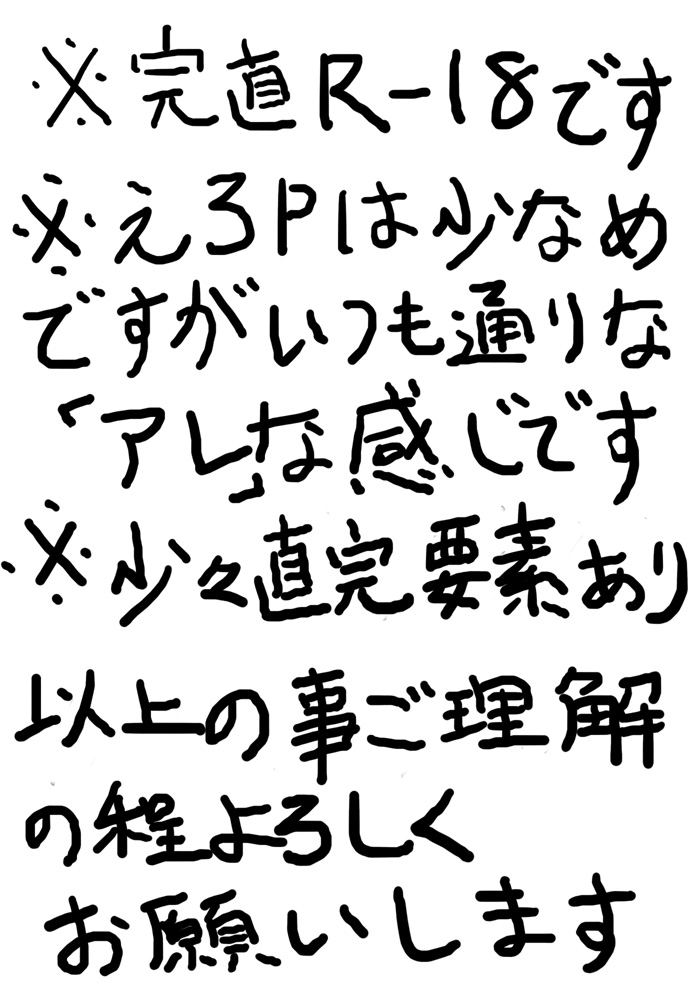 ※完直R-18です
※えろPは少なめ
ですがいつも通りな
「アレ」な感じです
※少々直完要素あり
以上の事ご理解
の程よろしく
お願いします